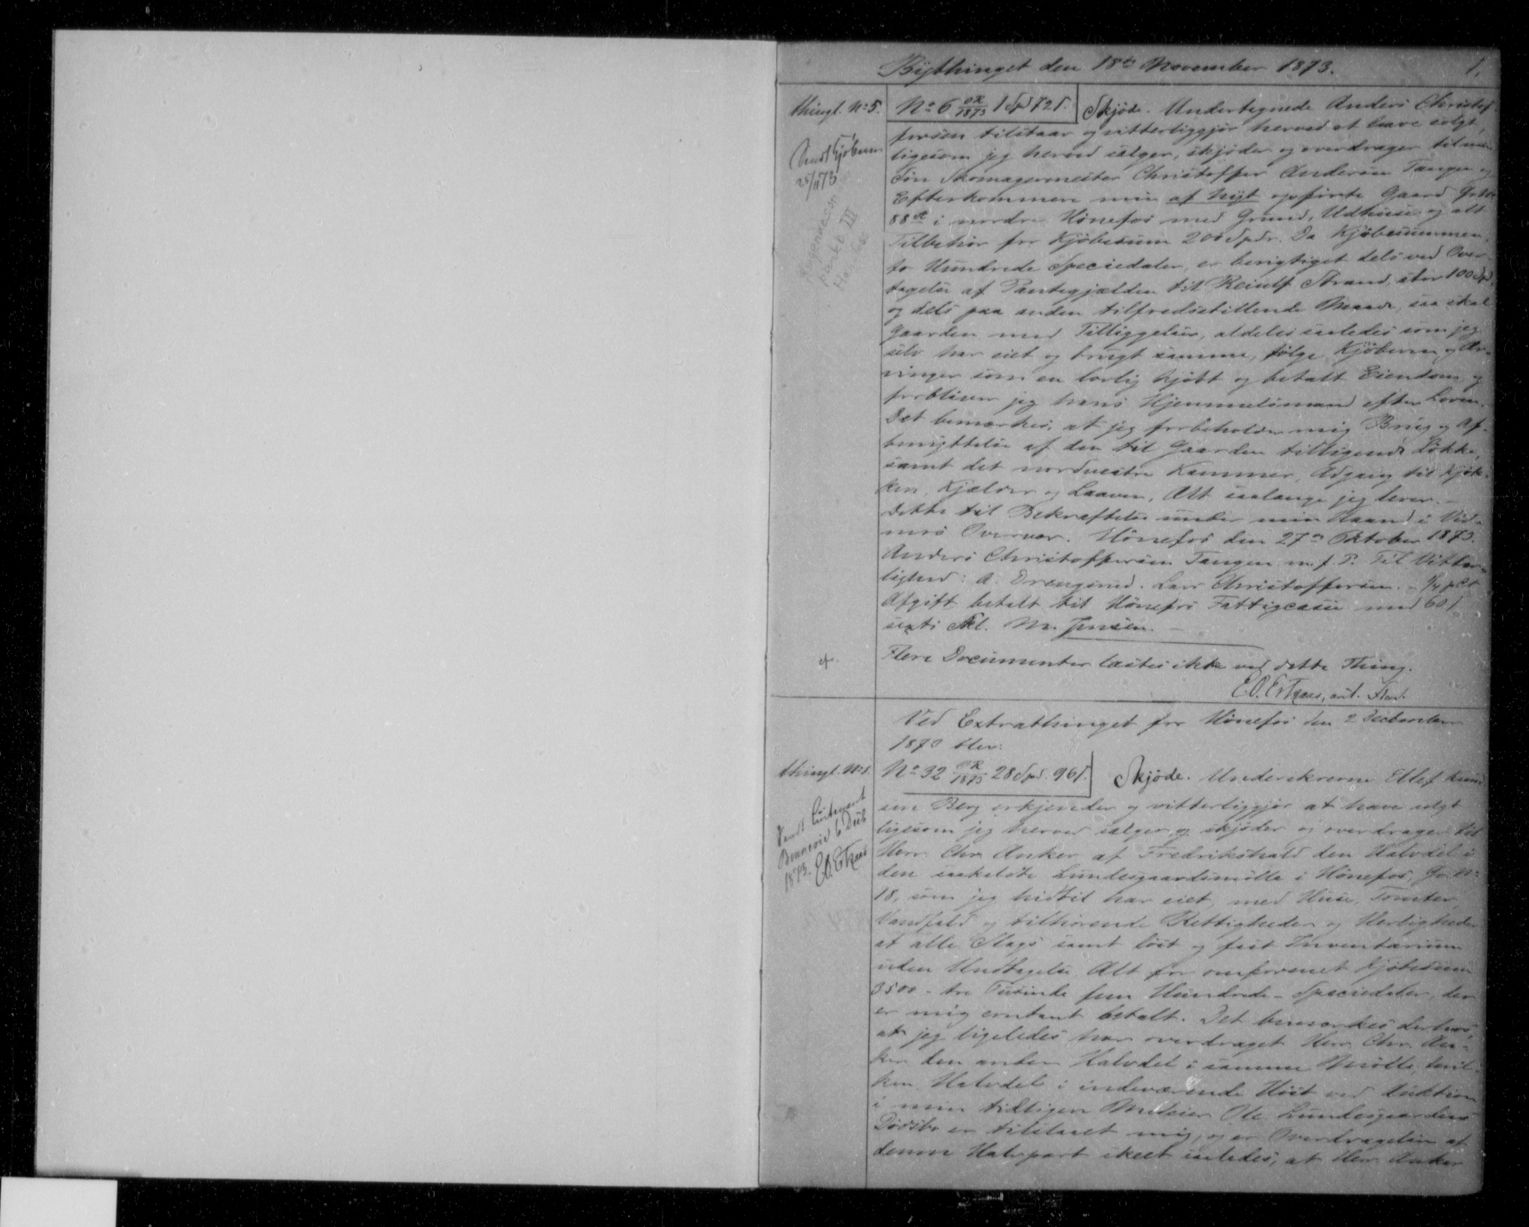 Bythinget den 18de November 1873.
1.
thingl. No 5.
No 6 1873 1 Spd 72 s.
Skjøde. Undertegnede Anders Christof
fersen tilstaar og vitterliggjør herved at have solgt,
ligesom jeg herved sælger, skjøder og overdrager til min
Søn Skomagermester Christoffer Andersen Tangen og
Efterkommere min af Nyt opførte Gaard
88 i nordre Hönefos med Grund, Udhuse og alt
Tilbehør for Kjøbesum 200 Spdr. Da Kjøbesummen,
to Hundrede Speciedaler, er berigtiget dels ved Over-
tagelse af Pantegjælden til Reinulf Strand, stor 100 Spd,
og dels paa anden tilfredsstillende Maade, saa skal
Gaarden med Tilliggelser, aldeles saaledes som jeg
selv har eiet og brugt samme, følge Kjøberen og Ar-
vinger som en lovlig kjøbt og betalt Eiendom og
forbliver jeg hans Hjemmelsmand efter Loven.
Det bemærkes, at jeg forbeholder mig Brug og Af-
benyttelse af den til Gaarden tilliggende Løkke,
samt det nordvestre Kammer, Adgang til Kjøk-
ken, Kjælder og Laaven, Alt saalænge jeg lever. -
Dette til Bekræftelse under min Haand i Vid-
ners Overvær. Hönefos den 27de Oktober 1873.
Anders Christoffersen Tangen m. f. P. Til Vitter-
lighed: A. Lars Christoffersen. -
Afgift betalt til Hönefos Fattigcasse med 60 s
sexti Skl. M. Jensen.
Flere Documenter læstes ikke ved dette Thing.
Ved Extrathinget for Hönefos den 2 December
1873 blev:
thingl. No 1.
No 32 1873 28 Spd. 96 s.
Skjøde. Underskrevne Ellef Knud
sen Berg erkjender og vitterliggjør at have solgt
ligesom jeg herved sælger og skjøder og overdrager til
Herr Chr. Anker af Fredrikshald den Halvdel i
den saakaldte Lundesgaardsmölle i Hönefos, Gr. No
18, som jeg hidtil har eiet, med Huse, Tomter,
Vandfald og tilhørende Rettigheder og Herligheder
af alle Slags samt löst og fast Inventarium
uden Undtagelse Alt for omforenet Kjøbesum
3500 - tre Tusinde fem Hundrede - Speciedaler, der
er mig contant betalt. Det bemærkes derhos,
at jeg ligeledes har overdraget Herr Chr. An-
ker den anden Halvdel i samme Mölle, hvil-
ken Halvdel i indeværende Höst ved Auktion
i min tidligere Medeier Ole Lundesgaardens
Dödsbo er tilslaaet mig, og er Overdragelsen af
denne Halvpart skeet saaledes, at Herr Anker